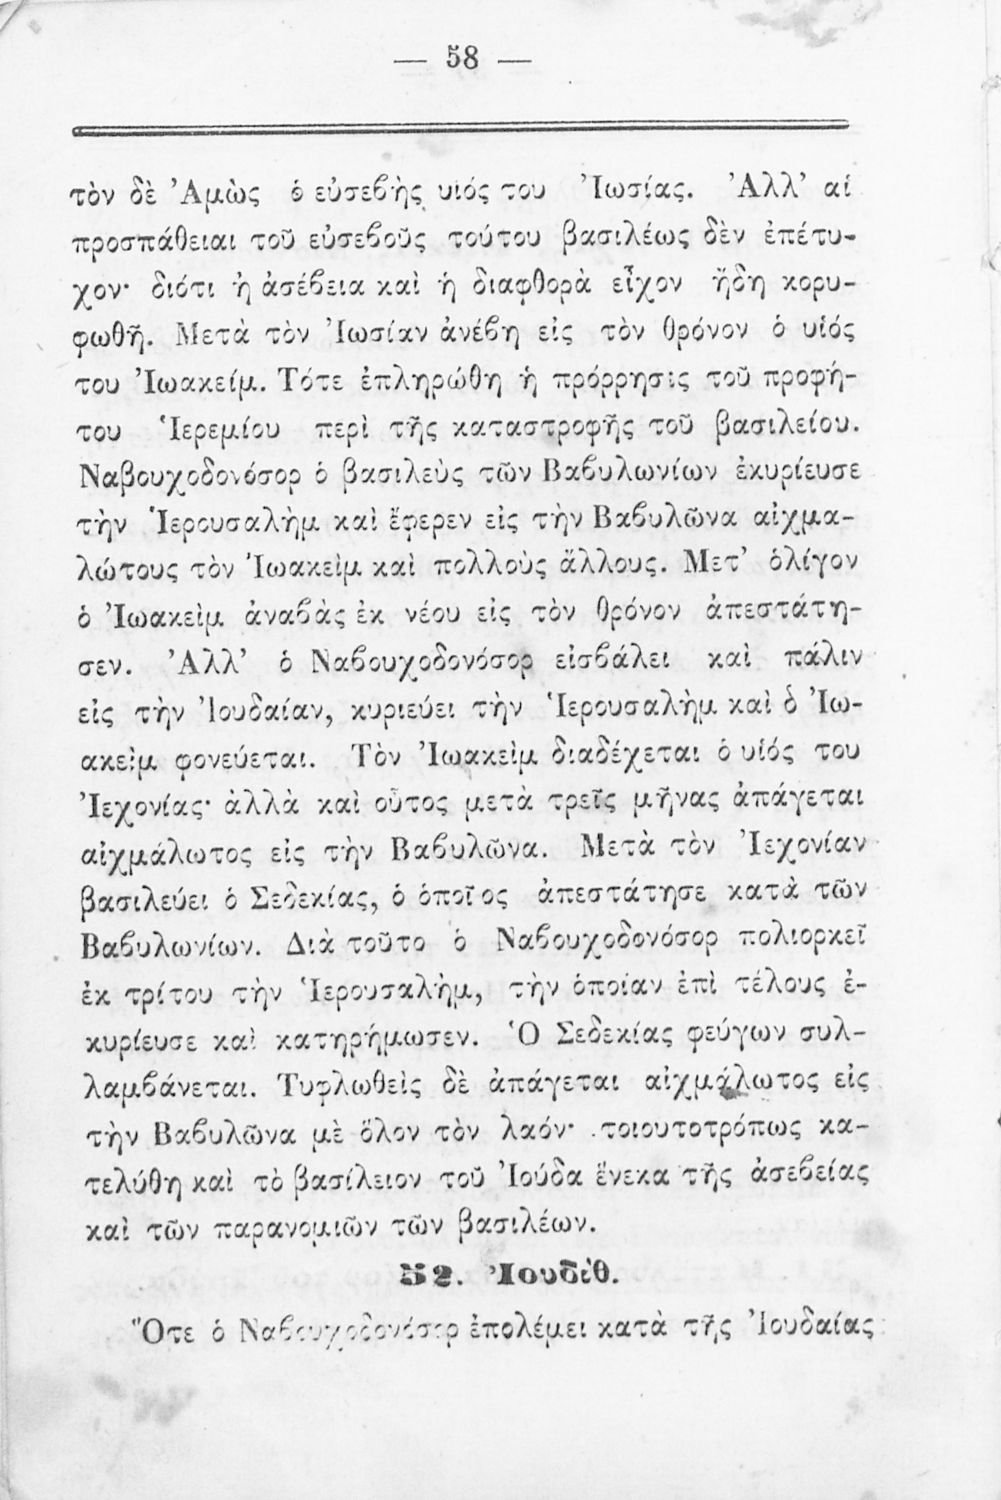 — 58 —
τὸν δὲ Ἀμὼς ὁ εὐσεβὴς υἱός του Ἰωσίας. Ἀλλ' αἱ
προσπάθειαι τοῦ εὐσεβοῦς τούτου βασιλέως δὲν ἐπέτυ-
χον· διότι ἡ ἀσέβεια καὶ ἡ διαφθορὰ εἶχον ἤδη κορυ-
φωθῆ. Μετὰ τὸν Ἰωσίαν ἀνέβη εἰς τὸν θρόνον ὁ υἱός
του Ἰωακείμ. Τότε ἐπληρώθη ἡ πρόρρησις τοῦ προφή-
του Ἱερεμίου περὶ τῆς καταστροφῆς τοῦ βασιλείου.
Ναβουχοδονόσορ ὁ βασιλεὺς τῶν Βαβυλωνίων ἐκυρίευσε
τὴν Ἱερουσαλὴμ καὶ ἔφερεν εἰς τὴν Βαβυλῶνα αἰχμα-
λώτους τὸν Ἰωακεὶμ καὶ πολλοὺς ἄλλους. Μετ' ὀλίγον
ὁ Ἰωακεὶμ ἀναβὰς ἐκ νέου εἰς τὸν θρόνον ἀπεστάτη-
σεν. Ἀλλ' ὁ Ναβουχοδονόσορ εἰσβάλει καὶ πάλιν
εἰς τὴν Ἰουδαίαν, κυριεύει τὴν Ἱερουσαλὴμ καὶ ὁ Ἰω-
ακεὶμ φονεύεται. Τὸν Ἰωακεὶμ διαδέχεται ὁ υἱός του
Ἰεχονίας· ἀλλὰ καὶ οὗτος μετὰ τρεῖς μῆνας ἀπάγεται
αἰχμάλωτος εἰς τὴν Βαβυλῶνα. Μετὰ τὸν Ἰεχονίαν
βασιλεύει ὁ Σεδεκίας, ὁ ὁποῖος ἀπεστάτησε κατὰ τῶν
Βαβυλωνίων. Διὰ τοῦτο ὁ Ναβουχοδονόσορ πολιορκεῖ
ἐκ τρίτου τὴν Ἱερουσαλὴμ, τὴν ὁποίαν ἐπὶ τέλους ἐ-
κυρίευσε καὶ κατηρήμωσεν. Ὁ Σεδεκίας φεύγων συλ-
λαμβάνεται. Τυφλωθεὶς δὲ ἀπάγεται αἰχμάλωτος εἰς
τὴν Βαβυλῶνα μὲ ὅλον τὸν λαόν· τοιουτοτρόπως κα-
τελύθη καὶ τὸ βασίλειον τοῦ Ἰούδα ἕνεκα τῆς ἀσεβείας
καὶ τῶν παρανομιῶν τῶν βασιλέων.
52. Ἰουδίθ.
Ὅτε ὁ Ναβουχοδονόσορ ἐπολέμει κατὰ τῆς Ἰουδαίας